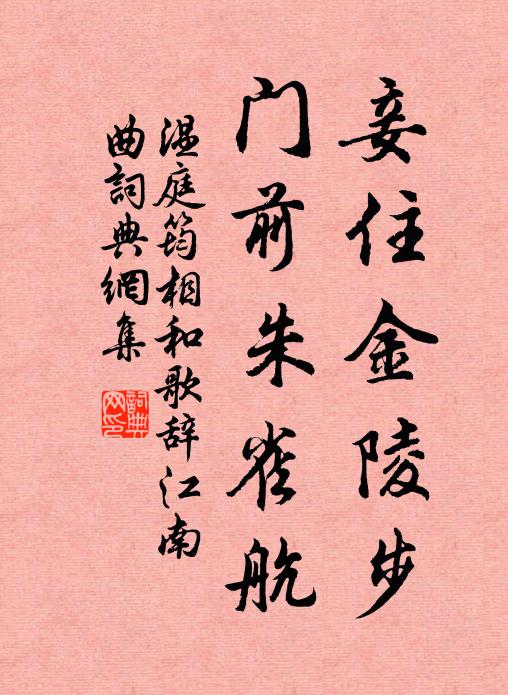 妾住金陵步
门前朱雀航
温庭筠相和歌辞江南
曲詞典網集
詞典网印